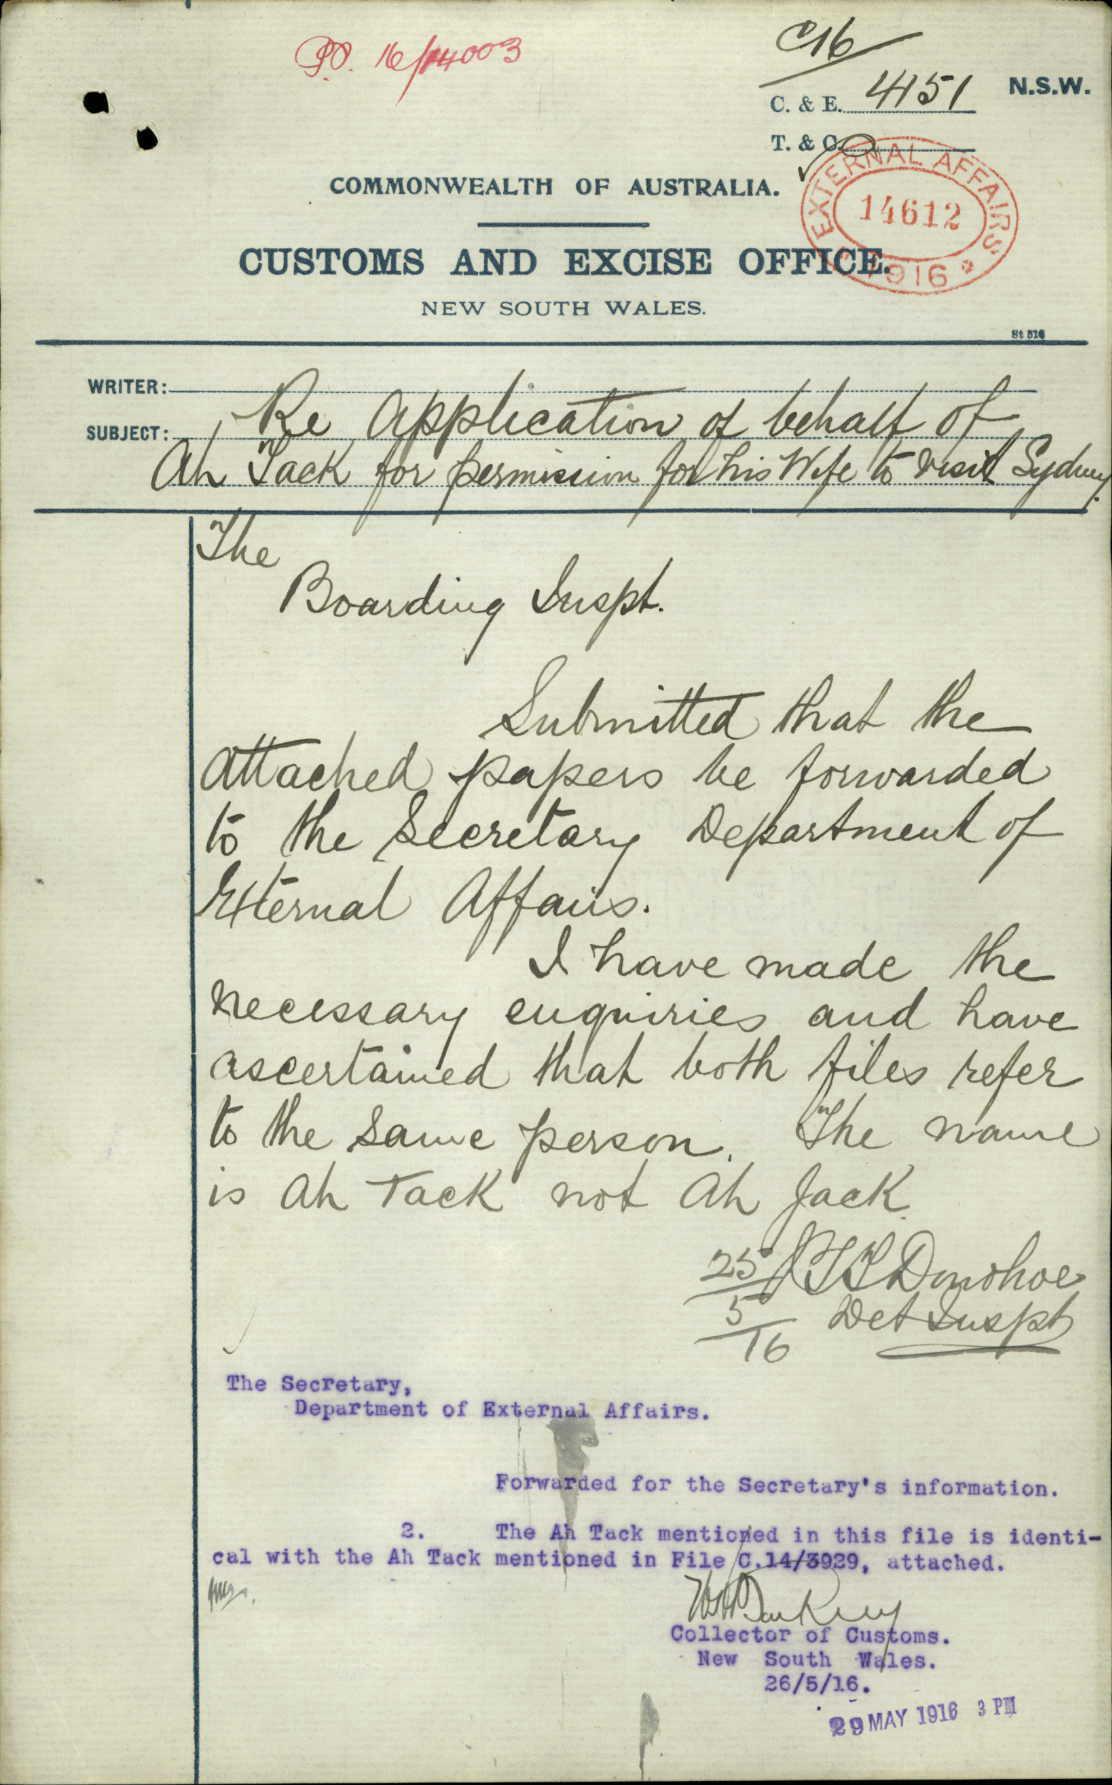 P.O. 16/14003
C16
C. & E. 4151
N.S.W.
T. & C.
COMMONWEALTH OF AUSTRALIA.
EXTERNAL AFFAIRS
14612
1916
CUSTOMS AND EXCISE OFFICE.
NEW SOUTH WALES.
St 526
WRITER:
SUBJECT: Re Application of behalf of
Ah Tack for permission for his Wife to visit Sydney.
The
Boarding Inspt.
Submitted that the
attached papers be forwarded
to the Secretary Department of
External Affairs.
I have made the
necessary enquiries and have
ascertained that both files refer
to the same person. The name
is Ah Tack not Ah Jack.
25/5/16 Donohoe
Det Inspt
The Secretary,
Department of External Affairs.
Forwarded for the Secretary's information.
2. The Ah Tack mentioned in this file is identi-
cal with the Ah Tack mentioned in File C.14/3929, attached.
Collector of Customs.
New South Wales.
26/5/16.
29 MAY 1916 3 PM